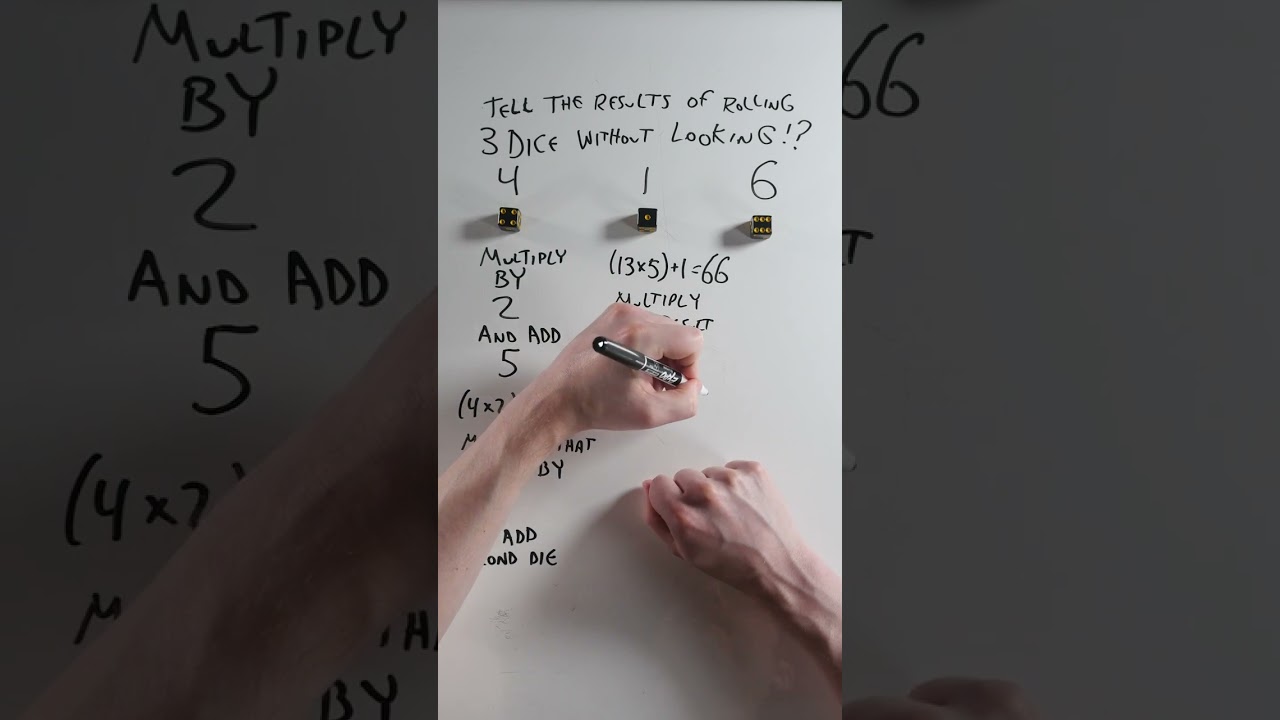 TELL THE RESULTS OF ROLLING
3 DICE WITHOUT LOOKING!?
4 1 6
MULTIPLY
BY
2
AND ADD
5
(4×2
THAT
BY
ADD
DIE
(13×5)+1=66
MULTIPLY
MULTIPLY
BY
2
AND ADD
5
(4×2
BY
66